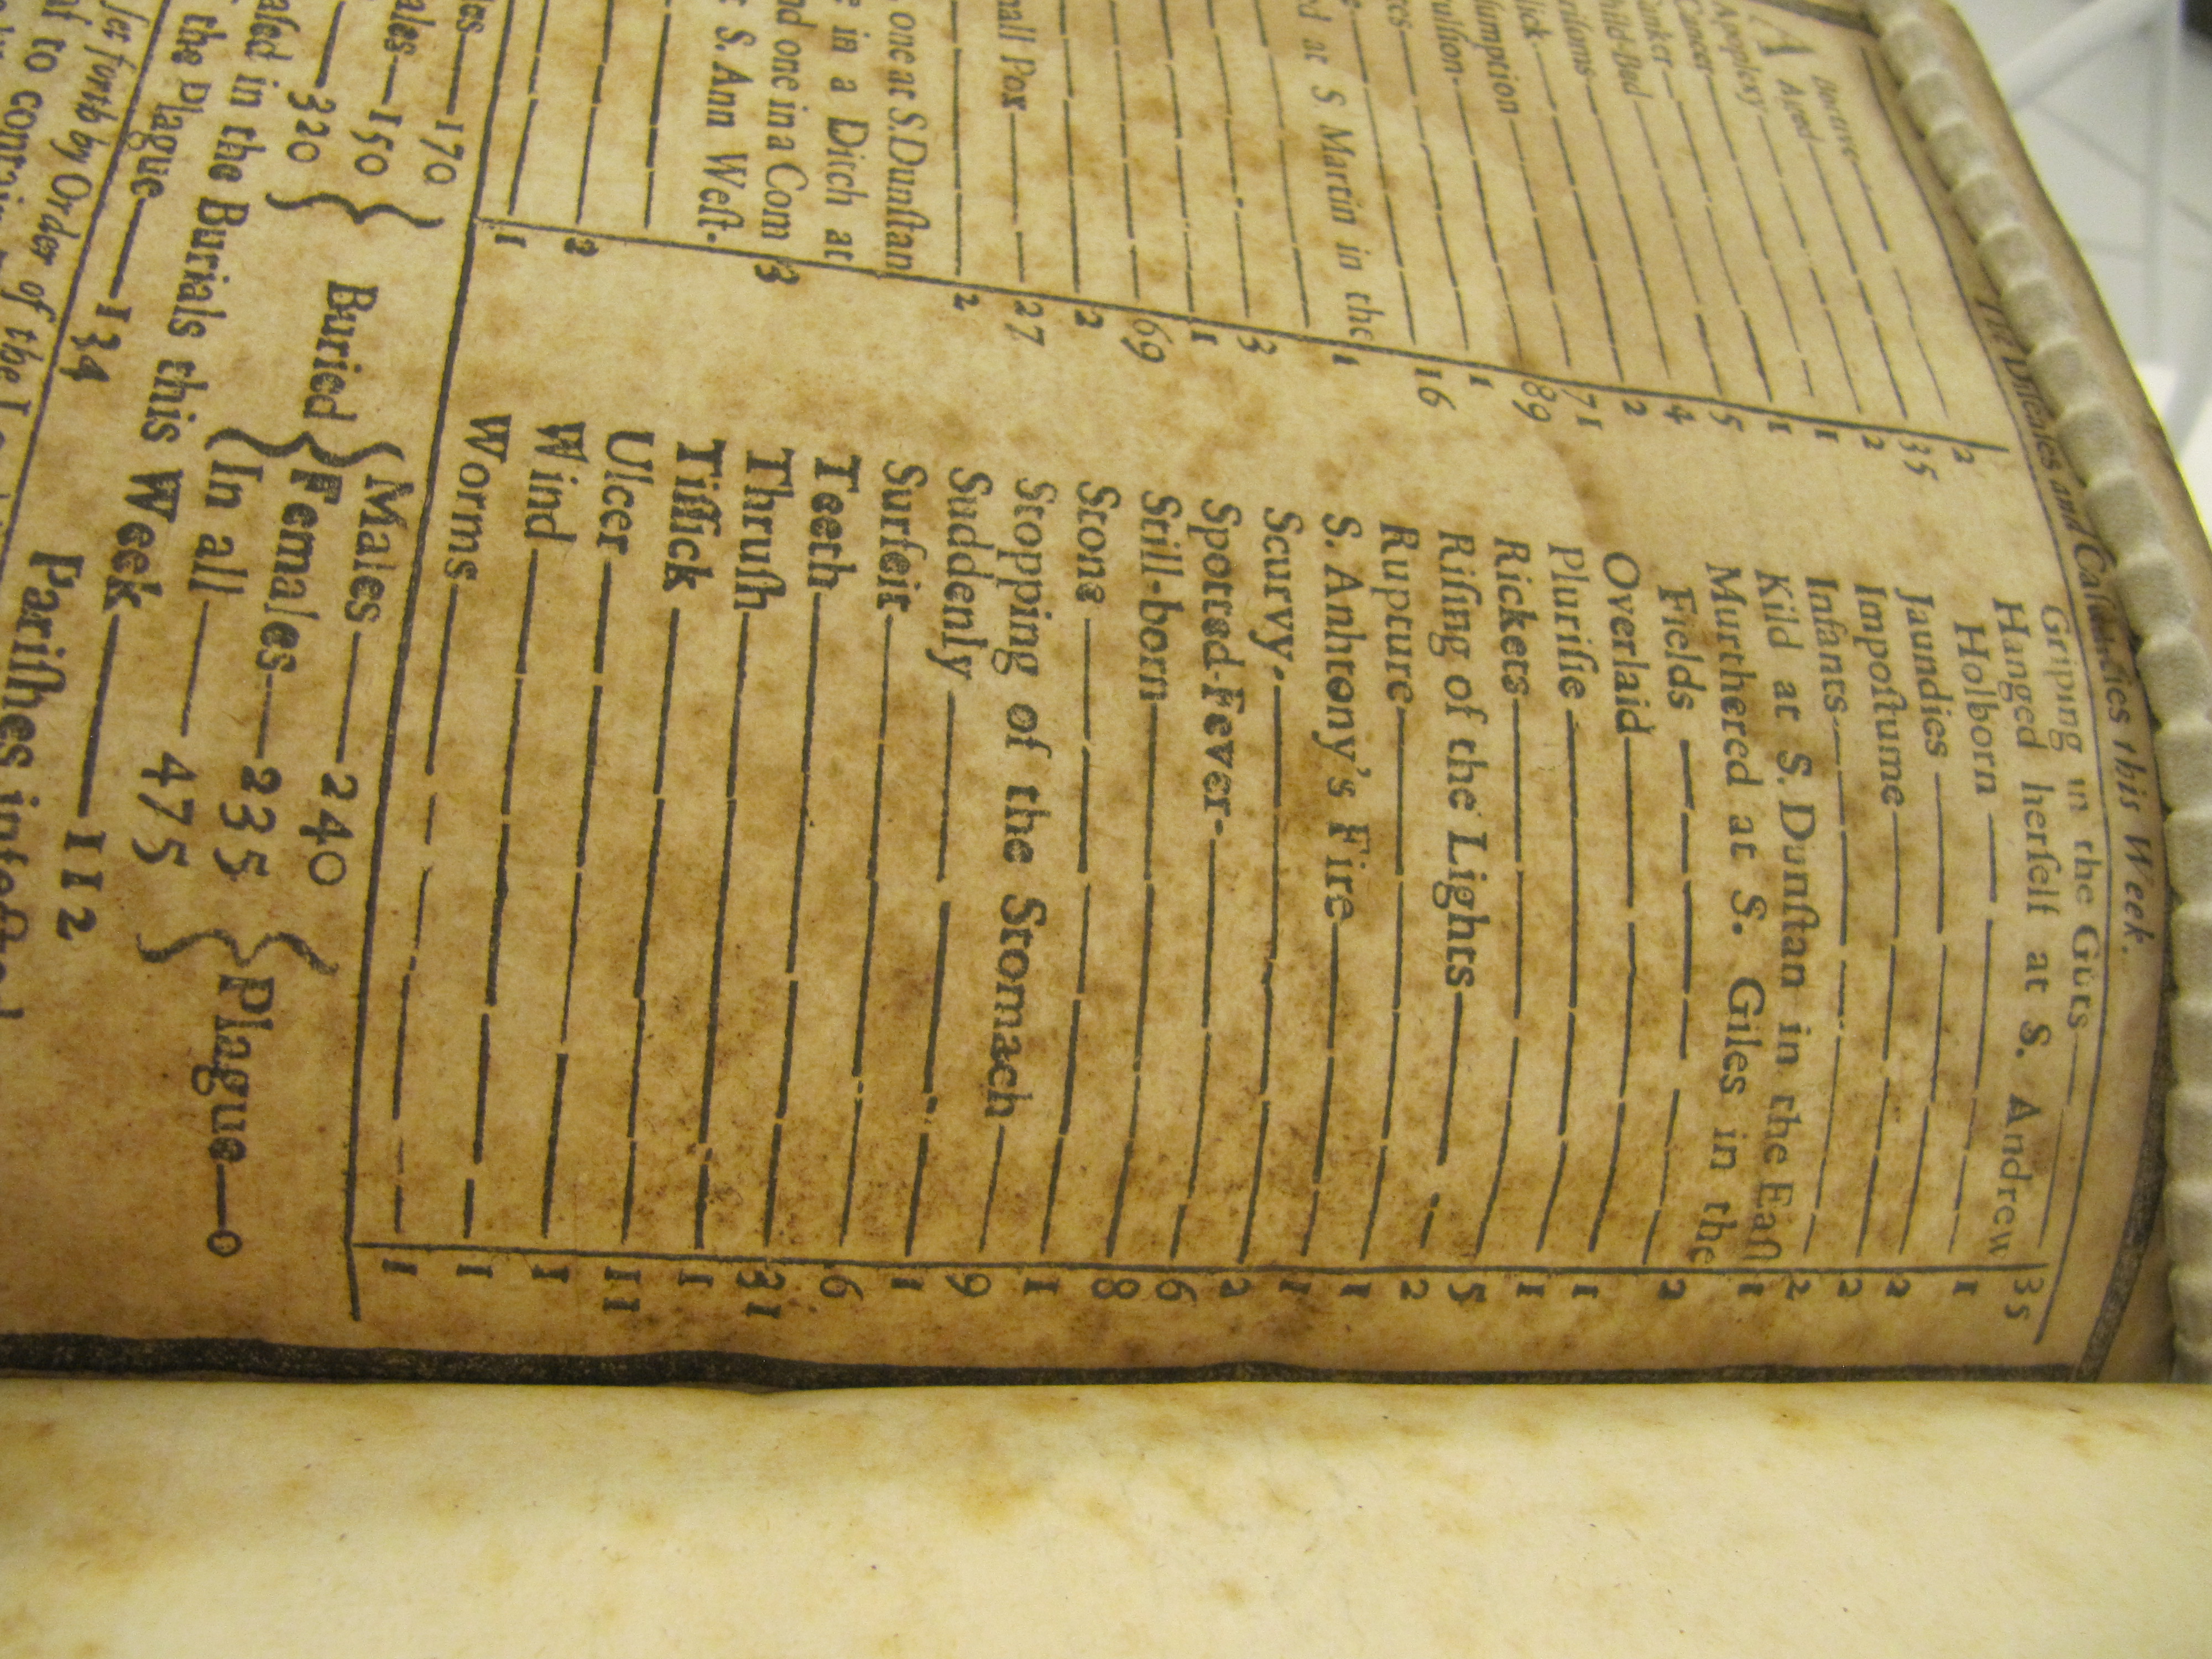 The Diseases and Casualties this Week.
Abortive — 2
Aged — 35
Apoplexy — 2
Cancer — 1
Canker — 1
hild-Bed — 5
risoms — 4
lick — 2
umption — 71
ulsion — 89
1
16
d at S Martin in the
1
3
1
69
2
mall Pox — 27
2
one at S.Dunſtan
in a Ditch at
nd one in a Com
S. Ann Weſt. 3
2
1
Griping in the Guts — 35
Hanged herſelf at S. Andrew
Holborn — 1
Jaundies — 2
Impoſtume — 2
Infants — 2
Kild at S. Dunſtan in the Eaſt 1
Murthered at S. Giles in the
Fields — 2
Overlaid — 1
Pluriſie — 1
Rickets — 5
Riſing of the Lights — 2
Rupture — 1
S. Anhtony's Fire — 1
Scurvy — 2
Spotted-Fever — 6
Still-born — 8
Stone — 1
Stopping of the Stomach — 9
Suddenly — 1
Surfeit — 6
Teeth — 31
Thruſh — 1
Tiſſick — 11
Ulcer — 1
Wind — 1
Worms — 1
les — 170
ales — 150
— 320
Buried
Males — 240
Females — 235
In all — 475
Plague — 0
aſed in the Burials this Week — 112
the Plague — 134
Pariſhes infected
ſet forth by Order of the